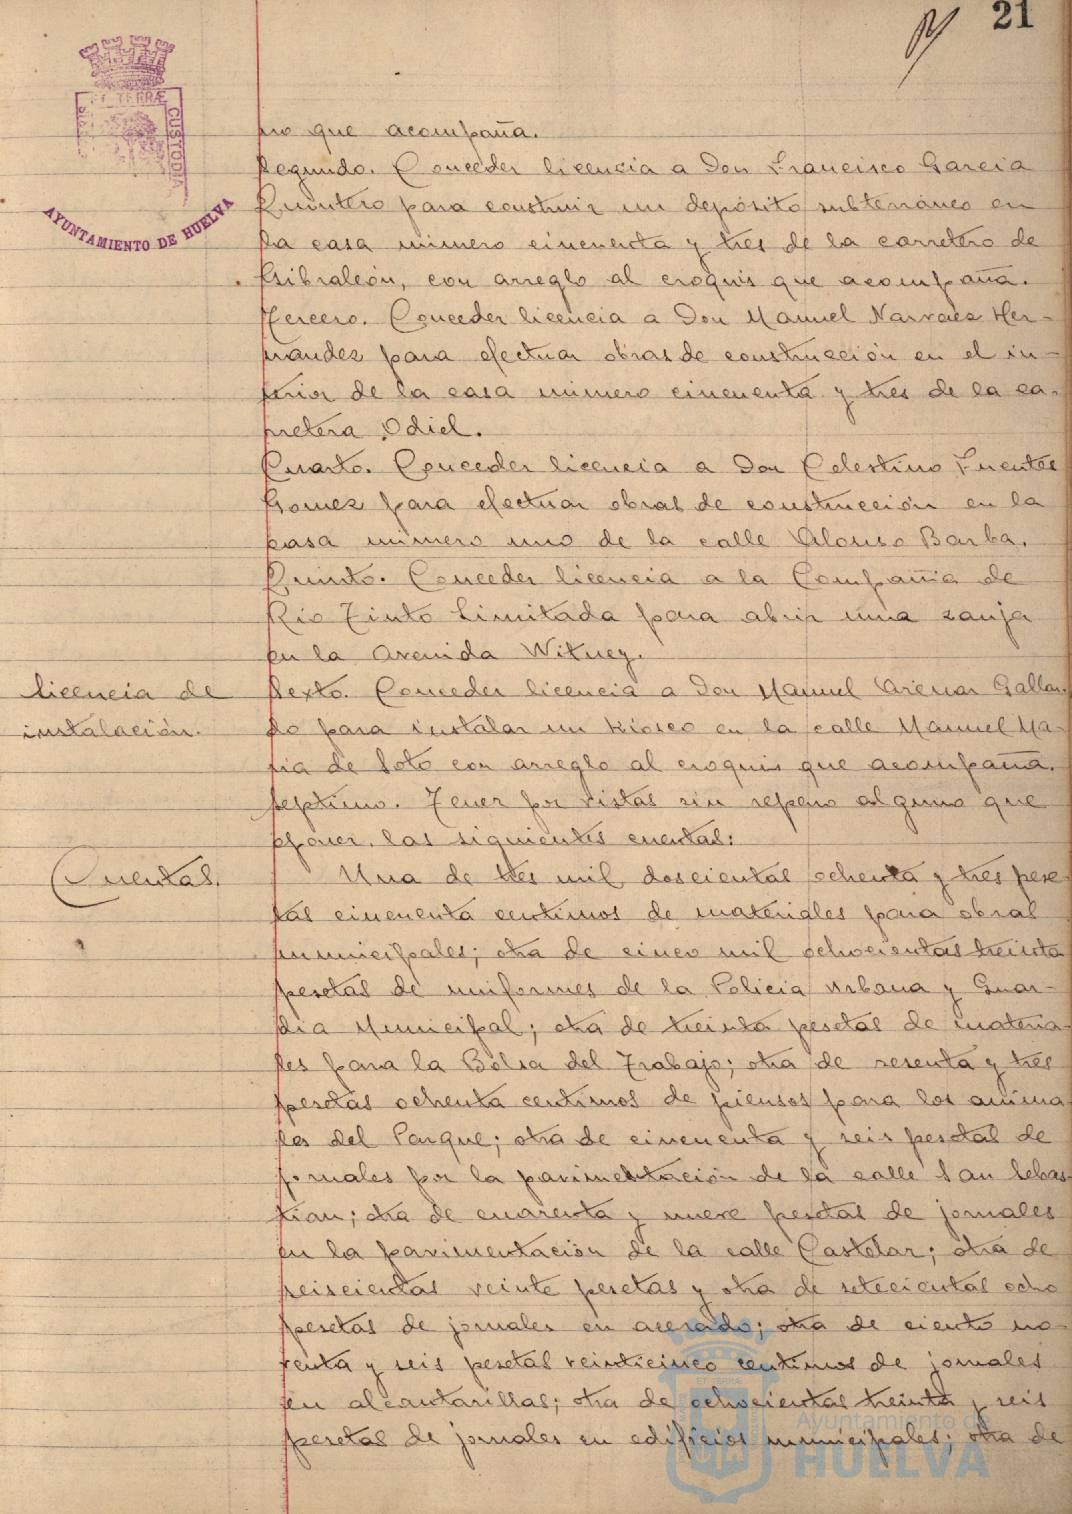 21
ET TERRÆ
CUSTODIA
AYUNTAMIENTO DE HUELVA
no que acompaña.
Segundo. Conceder licencia a Don Francisco Garcia
Quintero para construir un depósito subterráneo en
la casa número cincuenta y tres de la carretero de
Gibraleón, con arreglo al croquis que acompaña.
Tercero. Conceder licencia a Don Manuel Narvaez Her-
nandez para efectuar obras de construcción en el in-
terior de la casa número cincuenta y tres de la ca-
rretera Odiel.
Cuarto. Conceder licencia a Don Celestino Fuentes
Gomez para efectuar obras de construcción en la
casa número uno de la calle Alonso Barba.
Quinto. Conceder licencia a la Compañia de
Rio Tinto Limitada para abrir una zanja
en la Avenida Witney.
licencia de
instalación.
Sexto. Conceder licencia a Don Manuel Arenas Gallar-
do para instalar un kiosco en la calle Manuel Ma-
ria de Soto con arreglo al croquis que acompaña.
Septimo. Tener por vistas sin reparo alguno que
oponer, las siguientes cuentas:
Cuentas.
Una de tres mil doscientas ochenta y tres pese-
tas cincuenta centimos de materiales para obras
municipales; otra de cinco mil ochocientas treinta
pesetas de uniformes de la Policia Urbana y Guar-
dia Municipal; otra de treinta pesetas de materia-
les para la Bolsa del Trabajo; otra de sesenta y tres
pesetas ochenta centimos de piensos para los anima-
les del Parque; otra de cincuenta y seis pesetas de
jornales por la pavimentación de la calle San Sebas-
tian; otra de cuarenta y nueve pesetas de jornales
en la pavimentación de la calle Castelar; otra de
seiscientas veinte pesetas y otra de setecientas ocho
pesetas de jornales en acerado; otra de ciento no-
venta y seis pesetas veinticinco centimos de jornales
en alcantarillas; otra de ochocientas treinta y seis
pesetas de jornales en edificios municipales; otra de
Ayuntamiento de
HUELVA